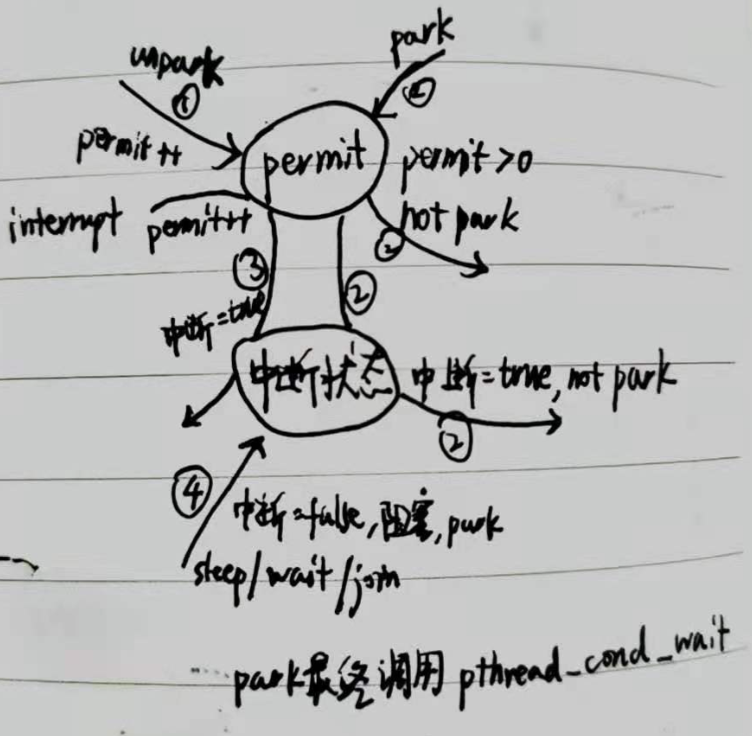 unpark
park
①
②
permit++
permit
permit>0
interrupt
permit++
not park
②
③
②
中断=true
中断状态
中断=true, not park
②
④
中断=false, 阻塞, park
sleep/wait/join
park最终调用 pthread_cond_wait